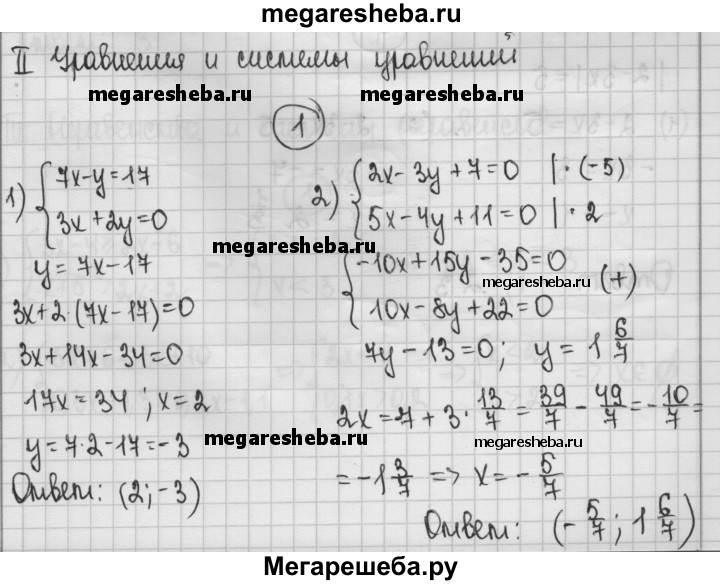 megaresheba.ru
II Уравнения и системы уравнений
megaresheba.ru megaresheba.ru
1
1) { 7x-y=17
3x+2y=0
y=7x-17
3x+2·(7x-17)=0
3x+14x-34=0
17x=34; x=2
y=7·2-17=-3
Ответ: (2;-3)
2) { 2x-3y+7=0 |·(-5)
5x-4y+11=0 |·2
megaresheba.ru
{ -10x+15y-35=0
megaresheba.ru (+)
10x-8y+22=0
7y-13=0; y=1 6/7
megaresheba.ru
2x=-7+3·13/7=39/7-49/7=-10/7=
megaresheba.ru
megaresheba.ru
=-1 3/7 => x=-5/7
Ответ: (-5/7; 1 6/7)
Мегарешеба.ру